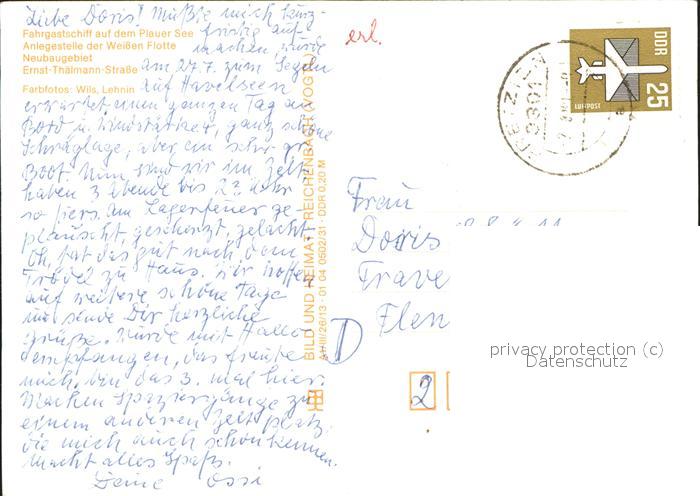 Liebe Doris! Mußte mich kurz-
fristig auf-
machen, wurde
am 27.7. zum Segeln
auf Havelseen
erwartet einen ganzen Tag an
Bord u. Windstärke, ganz schöne
Schräglage, aber ein sehr gr.
Boot. Nun sind wir im Zelt
haben 3 Abende bis 23 Uhr
so hier am Lagerfeuer ge-
plauscht, gescherzt, gelacht.
Oh, tat das gut nach dem
Trödel zu Haus. Wir hoffen
auf weitere schöne Tage
und sende Dir herzliche
Grüße. Wurde mit Hallo
empfangen, das freute
mich, bin das 3. mal hier.
Machen Spaziergänge zu
einem anderen Zeltplatz,
die mich auch schon kennen.
Macht alles Spaß.
Deine Ossi
Fahrgastschiff auf dem Plauer See
Anlegestelle der Weißen Flotte
Neubaugebiet
Ernst-Thälmann-Straße
Farbfotos: Wils, Lehnin
BILD UND HEIMAT REICHENBACH (VOGTL)
A1/III/26/13 · 01 04 0502/31 · DDR 0,20 M
erl.
DDR
25
LUFTPOST
Frau
Doris
Trave
Flen
D
2
privacy protection (c)
Datenschutz